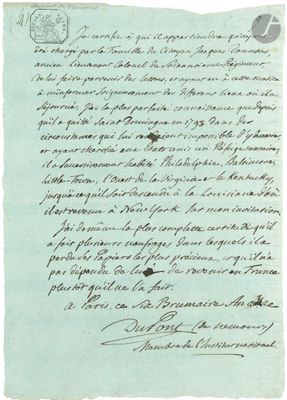 Je certifie à qui il appartiendra qu'ayant
été chargé par la famille du Citoyen Jacques
ancien Lieutenant Colonel du Régiment
de lui faire parvenir des lettres, et ayant eu à cette occasion
à m'informer soigneusement des différens lieux où il a
séjourné, J'ai la plus parfaite connaissance que depuis
qu'il a quitté Saint Domingue en 1793 dans des
circonstances qui lui rendaient impossible d'y demeurer
et ayant cherché aux Etats unis un Asile
il a successivement habité Philadelphie, Baltimore,
little-Town, l'Ouest de la Virginie et le Kentucky,
jusqu'à ce qu'il soit descendu à la Louisiane d'où
il est revenu à New York sur mon invitation.
J'ai de même la plus complette certitude qu'il
a fait plusieurs naufrages dans lesquels il a
perdu des Papiers les plus précieux, et qu'il n'a
pas dépendu de lui de revenir en France
plustot qu'il ne l'a fait.
a Paris, ce Six Brumaire An
DuPont (de nemours)
Membre de l'Institut national